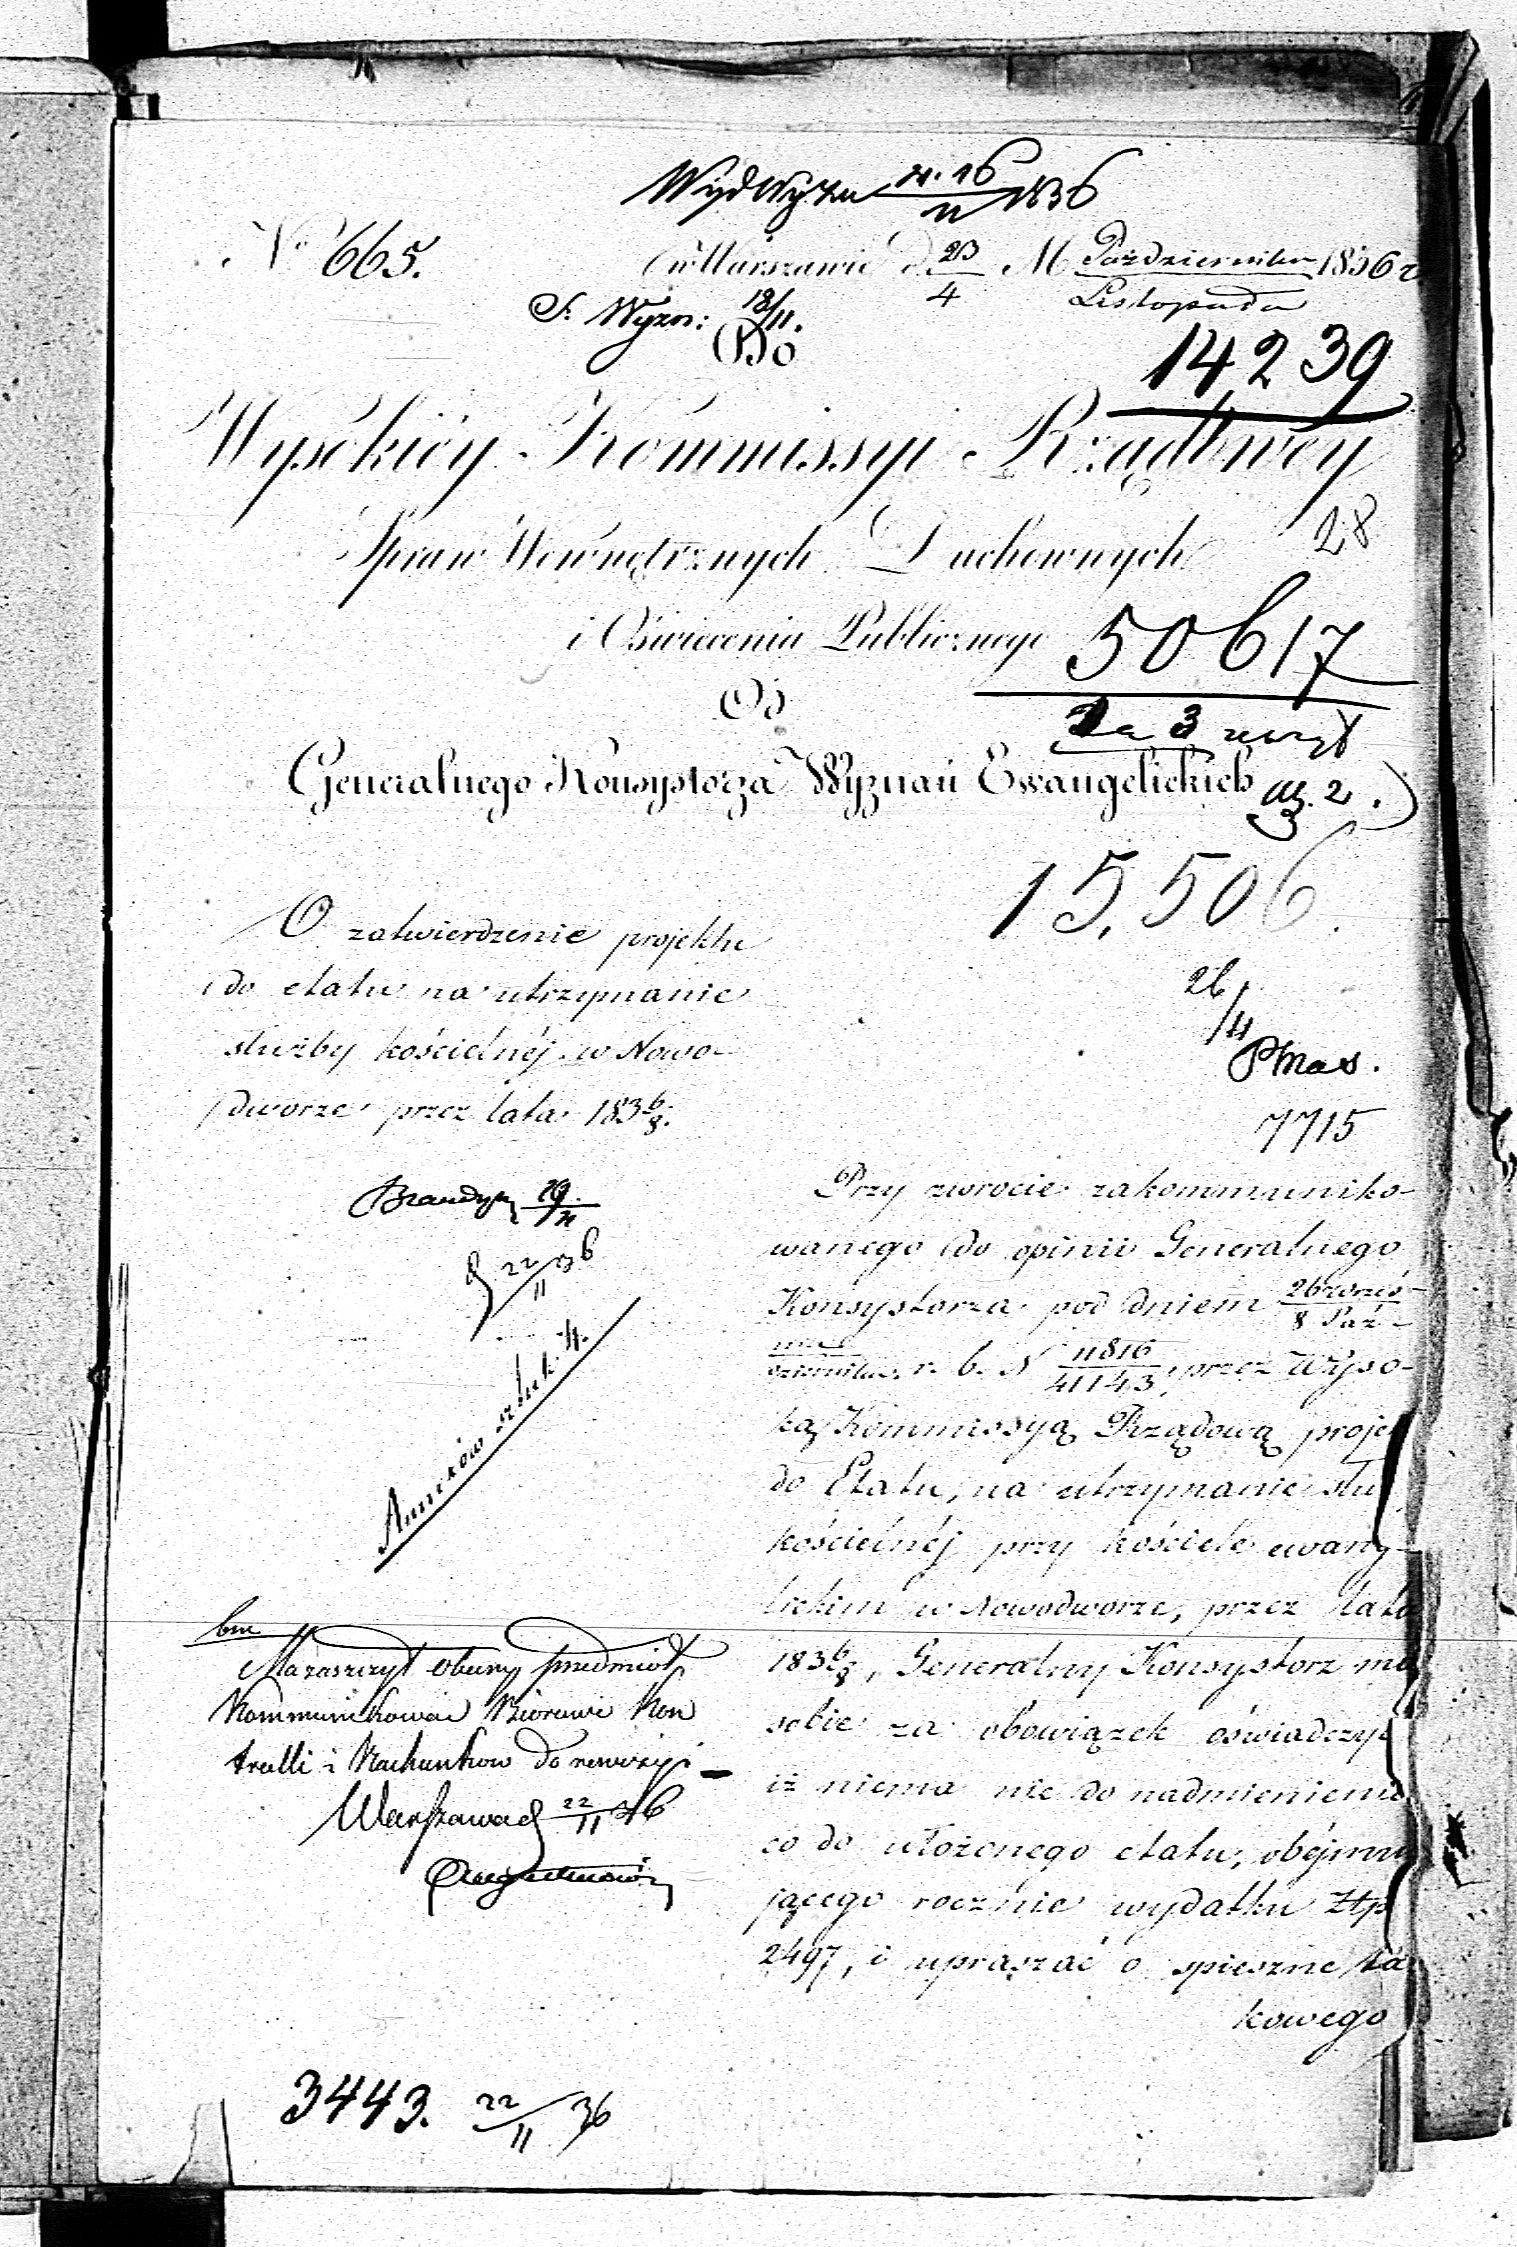 WydWyzn 16/11 1836
No 665.
w Warszawie d 23/4 M Października/Listopada 1836 r
S. Wyzn: 18/11.
Do
14239
Wysokiéy Kommissyi Rządowéy
Spraw Wewnętrznych Duchownych
28
i Oświecenia Publicznego
50617
Od
3
Generalnego Konsystorza Wyznań Ewangelickich
2.
15,506.
O zatwierdzenie projektu
do etatu na utrzymanie
służby kościelnéj w Nowo-
dworze przez lata 183 6/8.
26/11
7715
29/11
22/11 36
Annexów sztuk 4.
Przy zwrocie zakommuniko-
wanego do opinii Generalnego
Konsystorza pod dniem 26 Wrześ-/8 Paź-
nia/dziernika r. b. N 11816/41143, przez Wyso-
ką Kommissyą Rządową proje
do Etatu, na utrzymanie słu
kościelnéj przy kościele ewang-
lickim w Nowodworze, przez lata
183 6/8, Generalny Konsystorz ma
sobie za obowiązek oświadczyć
iż niema nic do nadmienienia
co do ułożonego etatu, obéjmu
jącego rocznie wydatku Złp
2497, i upraszać o spieszne ta
kowego
obecny przedmiot
Kommunikować Biorowi Kon
trolli i Rachunkow do rewizyi
Warszawa d 22/11 36
3443. 22/11 36